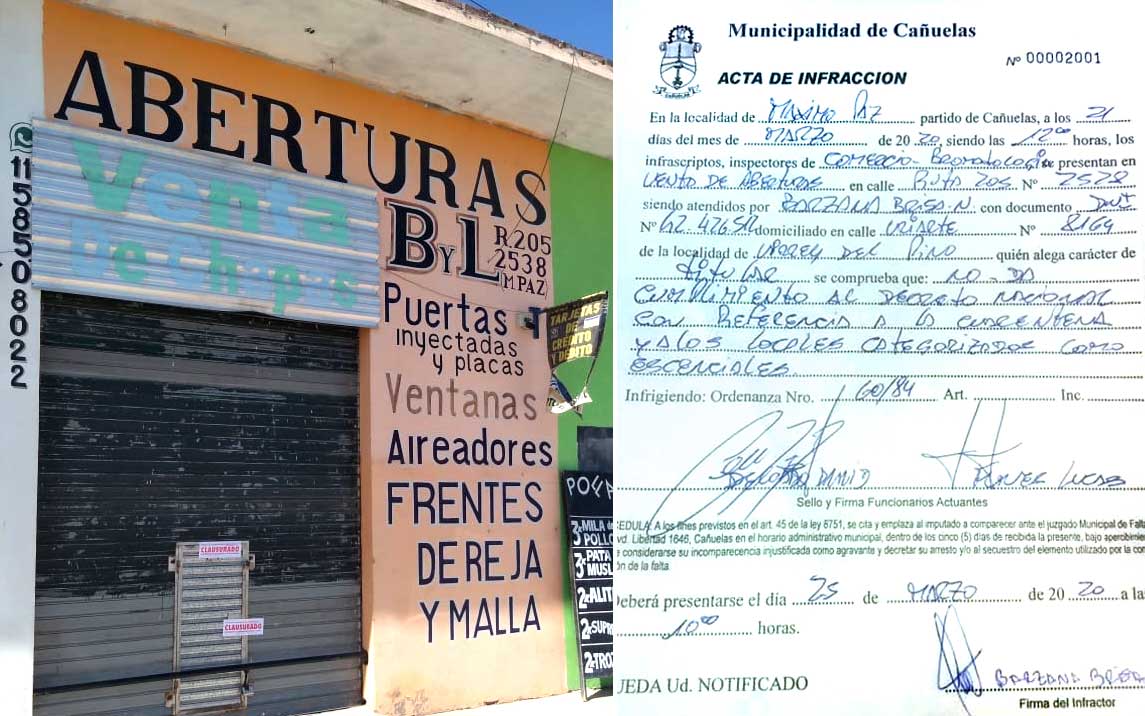 ABERTURAS
Venta
De Chapas
B Y L
R.205
2538
(M.PAZ)
1158508022
Puertas
inyectadas
y placas
Ventanas
Aireadores
FRENTES
DE REJA
Y MALLA
TARJETAS
DE
CRÉDITO
Y DÉBITO
CLAUSURADO
CLAUSURADO
3k MILA de
POLLO
3k PATA
MUSL
2k ALIT
2k SUPR
2k TROZ
Municipalidad de Cañuelas
Nº 00002001
ACTA DE INFRACCION
En la localidad de MAXIMO PAZ partido de Cañuelas, a los 21
días del mes de MARZO de 2020, siendo las 12⁰⁰ horas, los
infrascriptos, inspectores de COMERCIO-BROMATOLOGIA se presentan en
VENTA DE ABERTURAS en calle RUTA 205 Nº 2528
siendo atendidos por BARZANA BRISA N. con documento DNI
Nº domiciliado en calle URIARTE Nº 8164
de la localidad de VIRREY DEL PINO quién alega carácter de
TITULAR se comprueba que: NO-DA
CUMPLIMIENTO AL DECRETO NACIONAL
CON REFERENCIA A LA CUARENTENA
Y A LOS LOCALES CATEGORIZADOS COMO
ESCENCIALES
Infrigiendo: Ordenanza Nro. 60/84 Art. Inc.
LUCAS
Sello y Firma Funcionarios Actuantes
CEDULA: A los fines previstos en el art. 45 de la ley 8751, se cita y emplaza al imputado a comparecer ante el juzgado Municipal de Falta
vd. Libertad 1646, Cañuelas en el horario administrativo municipal, dentro de los cinco (5) días de recibida la presente, bajo apercibimie
e considerarse su incomparecencia injustificada como agravante y decretar su arresto y/o al secuestro del elemento utilizado por la con
ón de la falta.
Deberá presentarse el día 25 de MARZO de 2020 a la
10⁰⁰ horas.
JEDA Ud. NOTIFICADO
BARZANA BRISA
Firma del Infractor